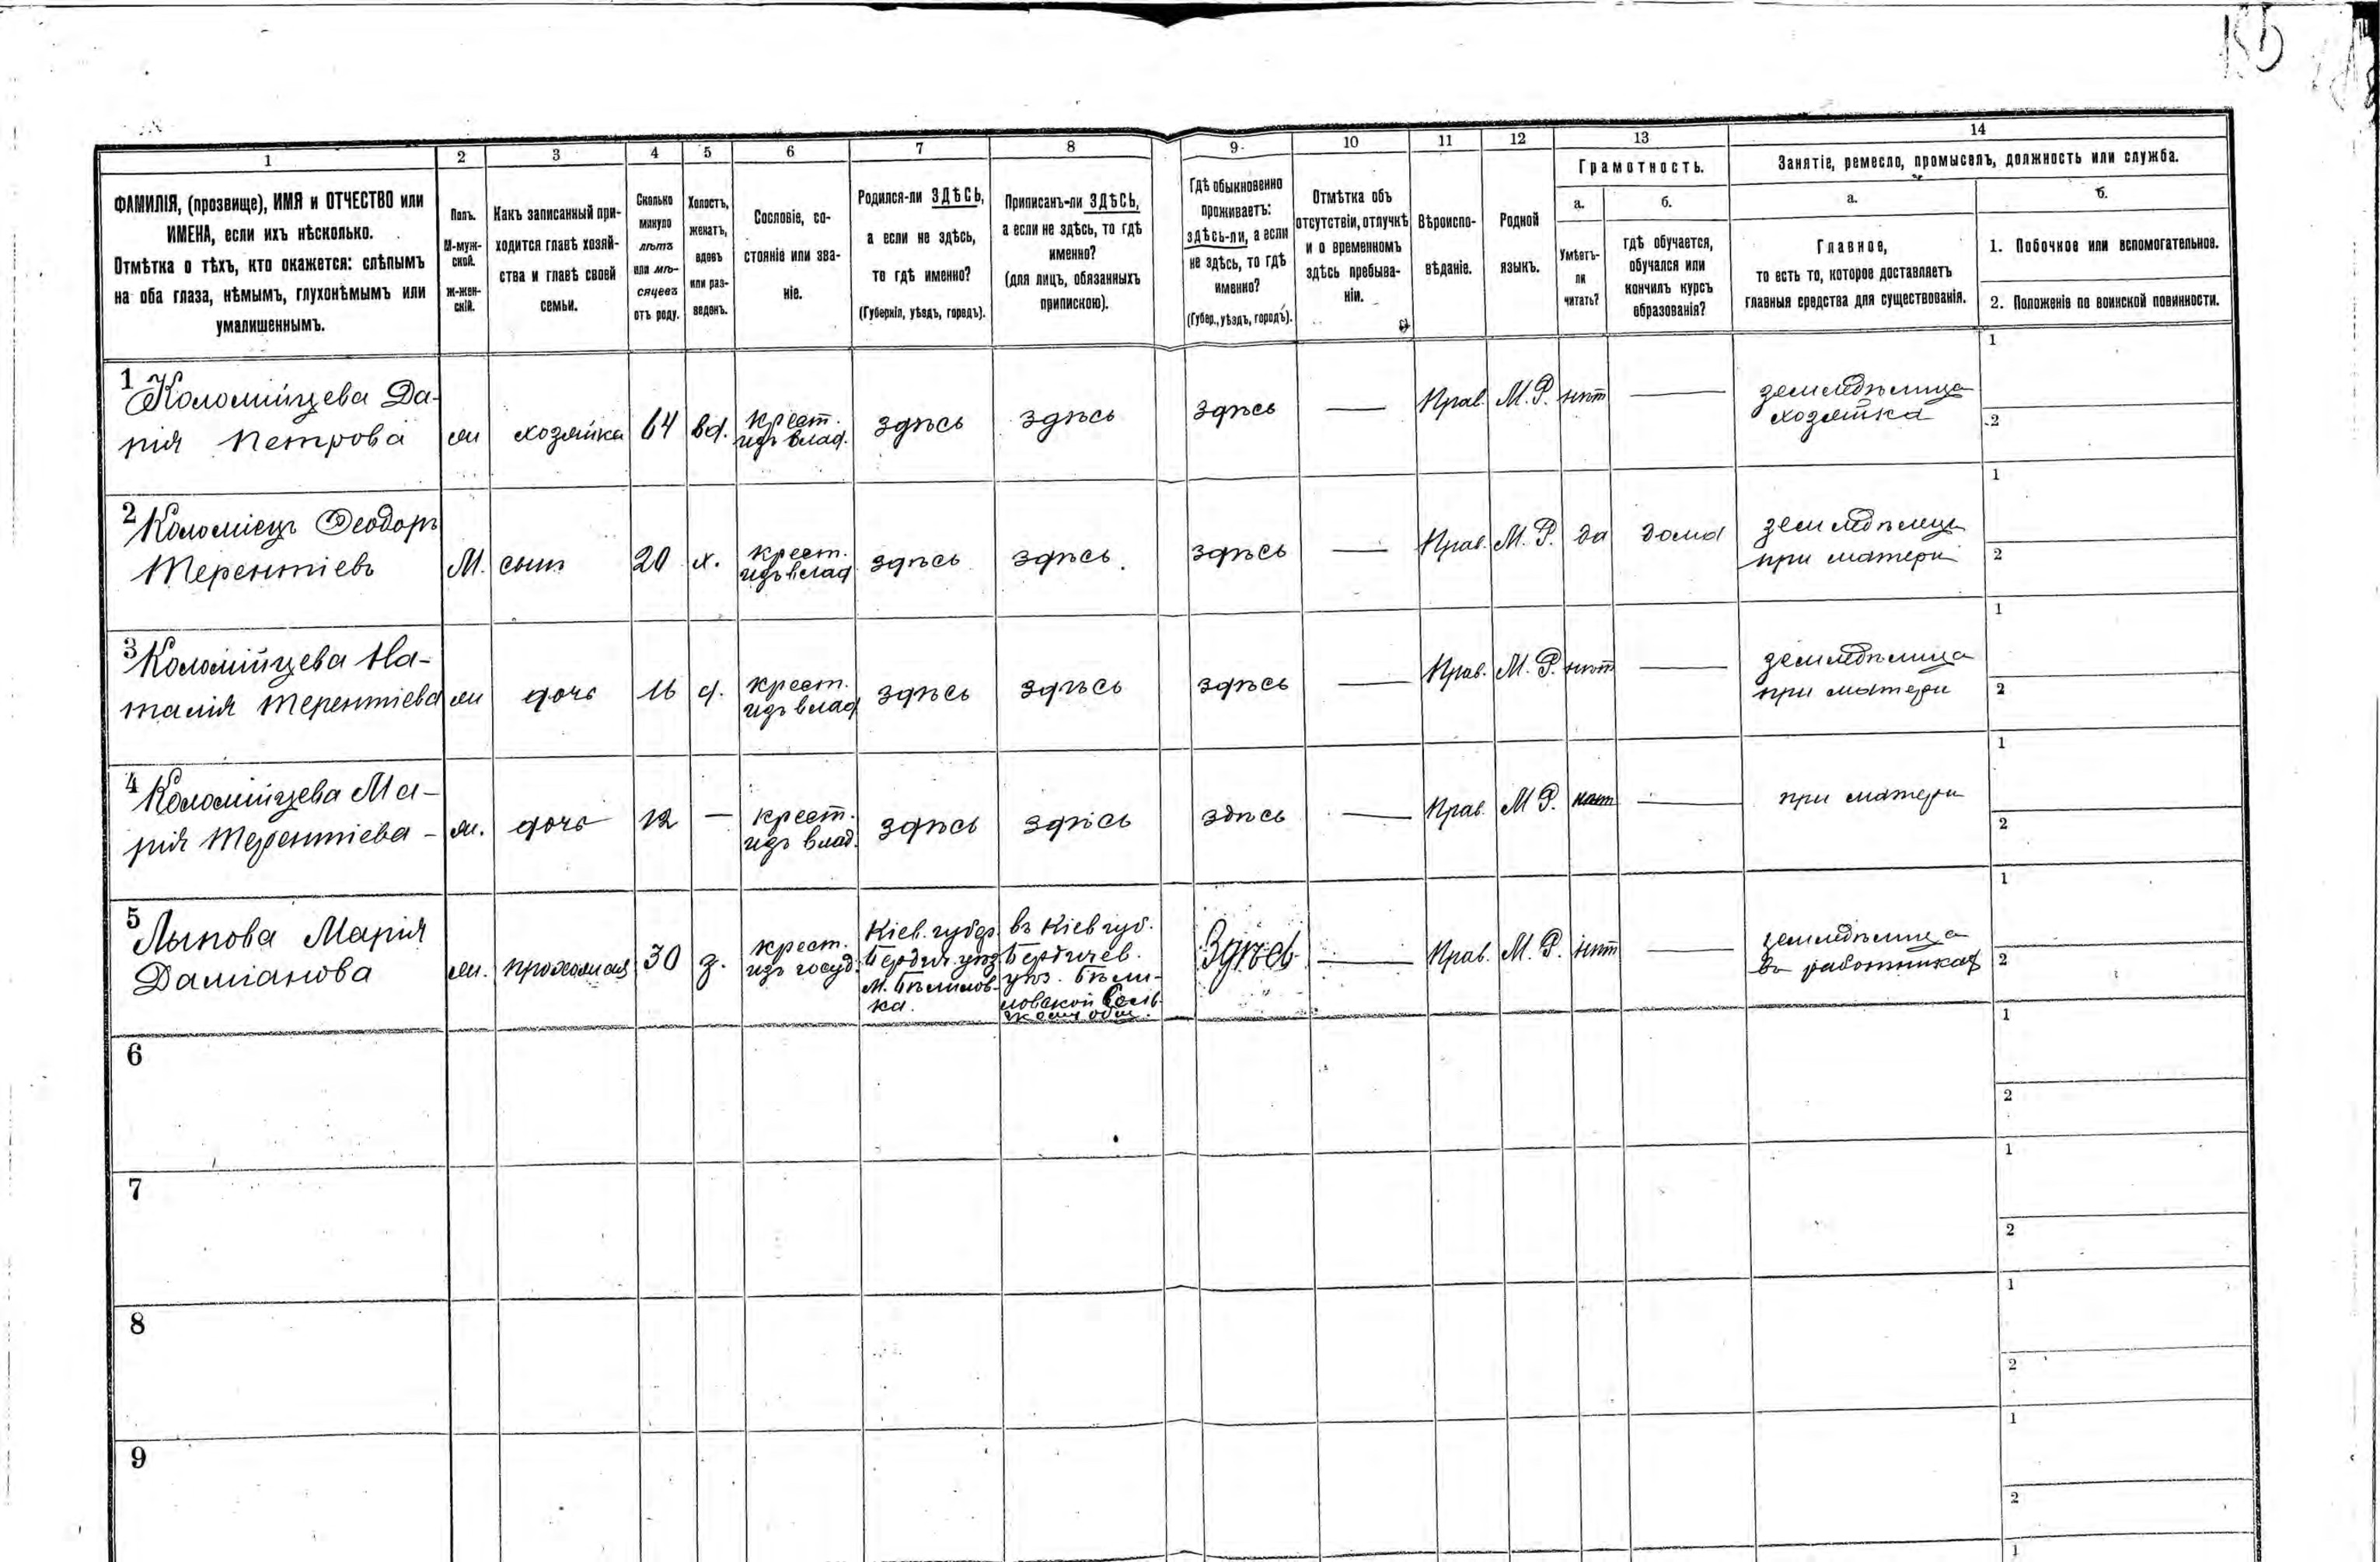 1 2 3 4 5 6 7 8 9 10 11 12 13 14
ФАМИЛІЯ, (прозвище), ИМЯ и ОТЧЕСТВО или
ИМЕНА, если ихъ нѣсколько.
Отмѣтка о тѣхъ, кто окажется: слѣпымъ
на оба глаза, нѣмымъ, глухонѣмымъ или
умалишеннымъ.
Полъ.
М-муж-
ской.
Ж-жен-
скій.
Какъ записанный при-
ходится главѣ хозяй-
ства и главѣ своей
семьи.
Сколько
минуло
лѣтъ
или мѣ-
сяцевъ
отъ роду.
Холостъ,
женатъ,
вдовъ
или раз-
веденъ.
Сословіе, со-
стояніе или зва-
ніе.
Родился-ли ЗДѢСЬ,
а если не здѣсь,
то гдѣ именно?
(Губернія, уѣздъ, городъ).
Приписанъ-ли ЗДѢСЬ,
а если не здѣсь, то гдѣ
именно?
(для лицъ, обязанныхъ
припискою).
Гдѣ обыкновенно
проживаетъ:
здѣсь-ли, а если
не здѣсь, то гдѣ
именно?
(Губер., уѣздъ, городъ).
Отмѣтка объ
отсутствіи, отлучкѣ
и о временномъ
здѣсь пребыва-
ніи.
Вѣроиспо-
вѣданіе.
Родной
языкъ.
Грамотность.
а.
Умѣетъ-
ли
читать?
б.
гдѣ обучается,
обучался или
кончилъ курсъ
образованія?
Занятіе, ремесло, промыселъ, должность или служба.
а.
Главное,
то есть то, которое доставляетъ
главныя средства для существованія.
б.
1. Побочное или вспомогательное.
2. Положеніе по воинской повинности.
1 Коломійцева Да-
рія Петрова
ж хозяйка 64 вд. крест.
изъ влад. здѣсь здѣсь здѣсь — Прав. М.Р. нѣт — земледѣлица
хозяйка
1
2
2 Коломіецъ Ѳеодоръ
Терентіевъ
М. сынъ 20 х. крест.
изъ влад здѣсь здѣсь. здѣсь — Прав. М.Р. да дома земледѣлецъ
при матери
1
2
3 Коломійцева На-
талія Терентіева
ж дочь 16 д. крест.
изъ влад здѣсь здѣсь здѣсь — Прав. М.Р. нѣт — земледѣлица
при матери
1
2
4 Коломійцева Ма-
рія Терентіева -
ж. дочь 12 — крест.
изъ влад. здѣсь здѣсь здѣсь — Прав. М Р. нѣт — при матери
1
2
5 Лыпова Марія
Даміанова
ж. 30 з. крест.
изъ госуд.
Кіев. губер.
Бердич. уѣз
м. Бѣлилов-
ка.
въ Кіев губ.
Бердичев.
уѣз. Бѣли-
ловской
Здѣсь — Прав. М. Р. нѣт — земледѣлица
въ работникахъ
1
2
6
1
2
7
1
2
8
1
2
9
1
2
1